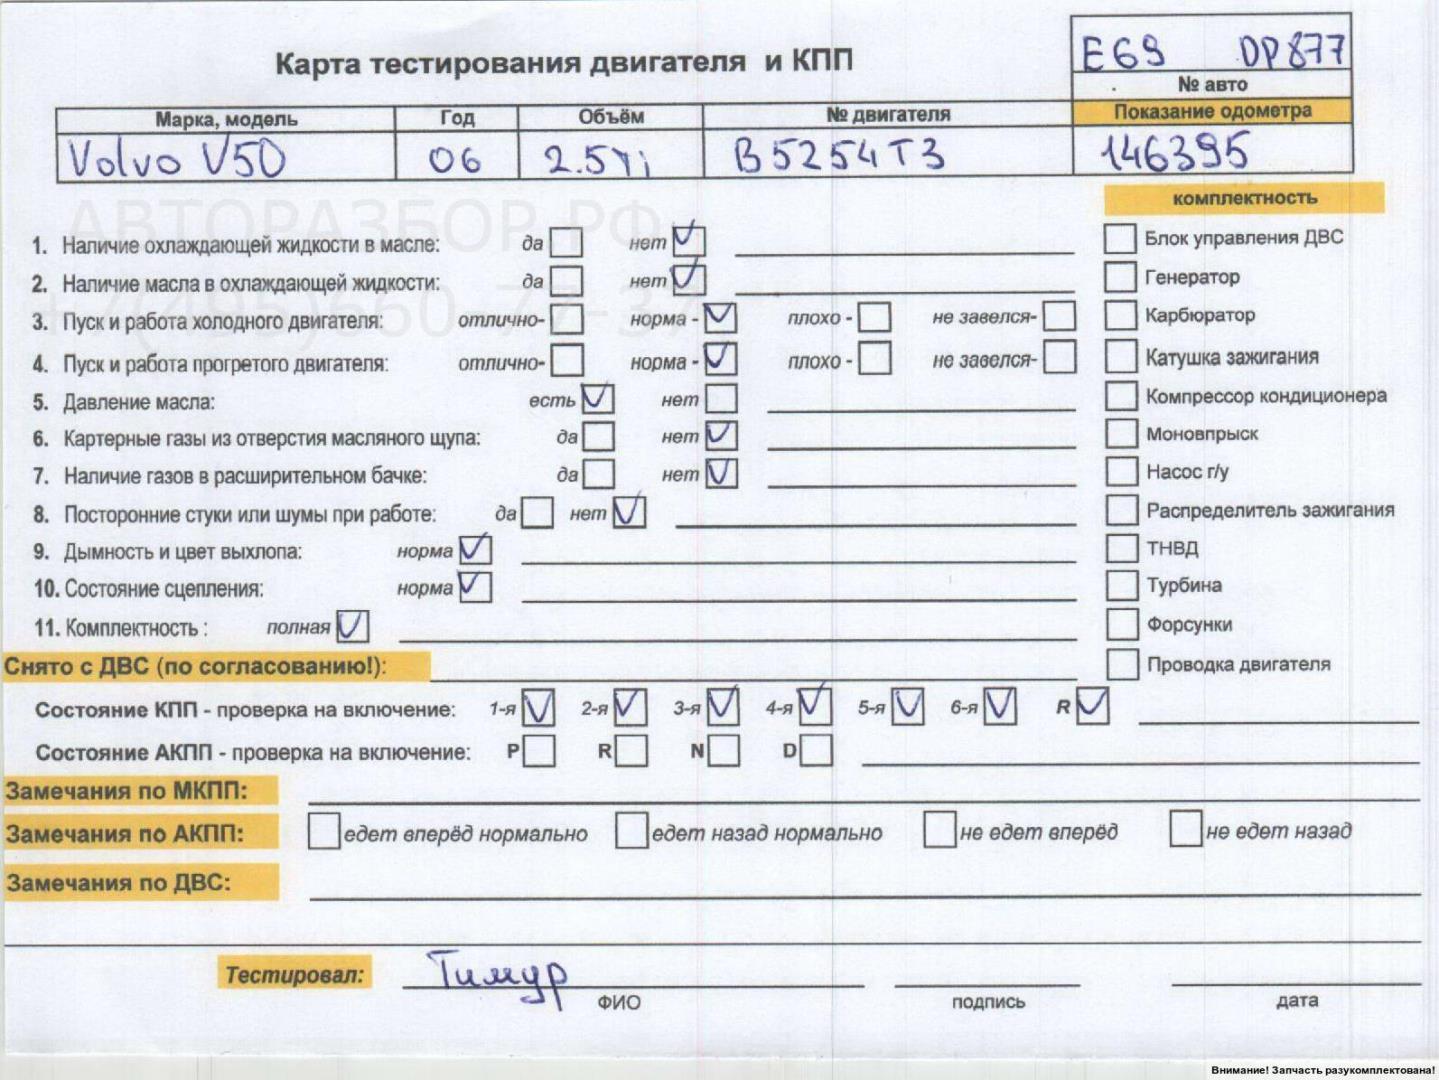 Карта тестирования двигателя и КПП
E69 DP877
№ авто
Марка, модель Год Объём № двигателя Показание одометра
Volvo V50 06 2.5Ti B5254T3 146395
АВТОРАЗБОР.РФ
+7(495)660-77-37
комплектность
1. Наличие охлаждающей жидкости в масле: да нет
Блок управления ДВС
2. Наличие масла в охлаждающей жидкости: да нет
Генератор
3. Пуск и работа холодного двигателя: отлично- норма - плохо - не завелся-
Карбюратор
4. Пуск и работа прогретого двигателя: отлично- норма - плохо - не завелся-
Катушка зажигания
5. Давление масла: есть нет
Компрессор кондиционера
6. Картерные газы из отверстия масляного щупа: да нет
Моновпрыск
7. Наличие газов в расширительном бачке: да нет
Насос г/у
8. Посторонние стуки или шумы при работе: да нет
Распределитель зажигания
9. Дымность и цвет выхлопа: норма
ТНВД
10. Состояние сцепления: норма
Турбина
11. Комплектность : полная
Форсунки
Снято с ДВС (по согласованию!):
Проводка двигателя
Состояние КПП - проверка на включение: 1-я 2-я 3-я 4-я 5-я 6-я R
Состояние АКПП - проверка на включение: P R N D
Замечания по МКПП:
Замечания по АКПП: едет вперёд нормально едет назад нормально не едет вперёд не едет назад
Замечания по ДВС:
Тестировал: Тимур
ФИО подпись дата
Внимание! Запчасть разукомплектована!